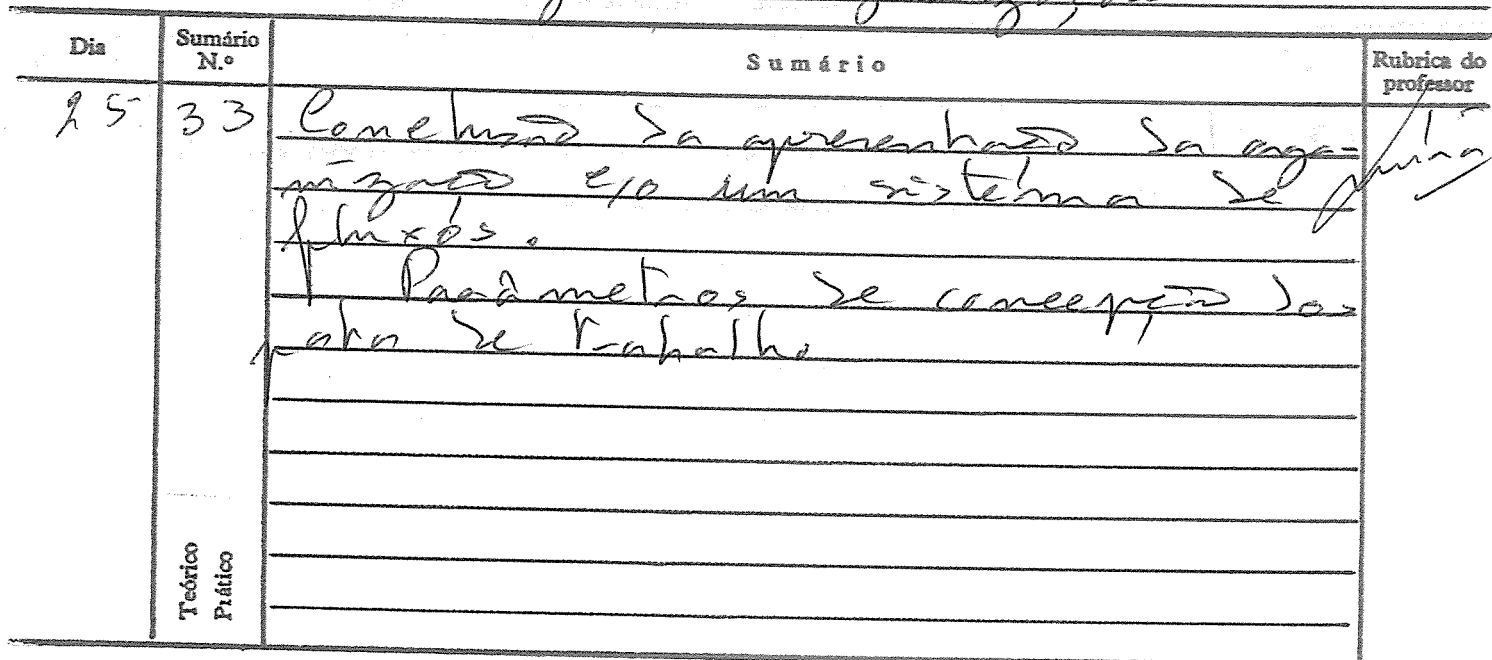 Dia
Sumário
N.º
Sumário
Rubrica do
professor
25
33
Conclusão da apresentação da orga-
nização c/o um sistema de
fluxos.
Parâmetros de concepção dos
de trabalho
Teórico
Prático